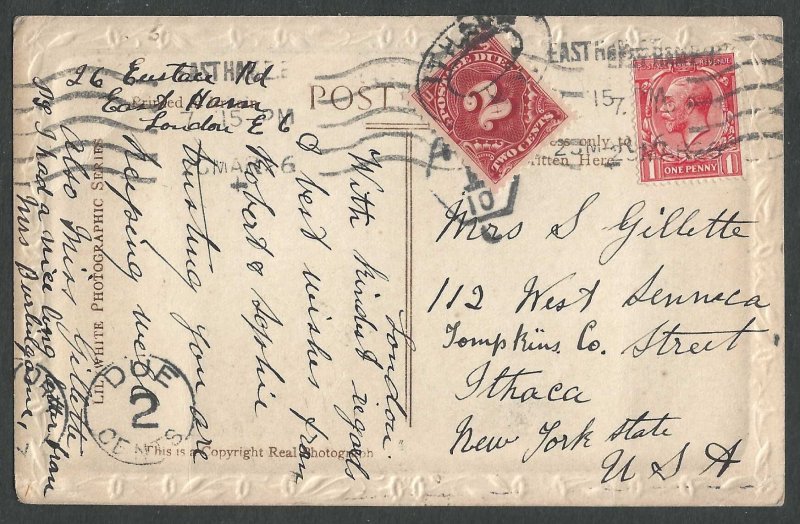 26 Eustace Rd
East Ham
London E 6
POST
EAST HAM
7. 15 PM
MAR 26
POSTAGE DUE
2
TWO CENTS
ITHACA
EAST HAM
15
ONE PENNY
1
T
10
C
Mrs S Gillette
112 West Senneca
Street
Tompkins. Co.
Ithaca
New York State
U S A
London.
With kindest regards
& best wishes from
Robert & Sophie
trusting you are
keeping well
also Miss Gillette
I had a nice long letter from
Mrs Burlilgame,
LILYWHITE PHOTOGRAPHIC SERIES
DUE
2
CENTS
This is a Copyright Real Photograph